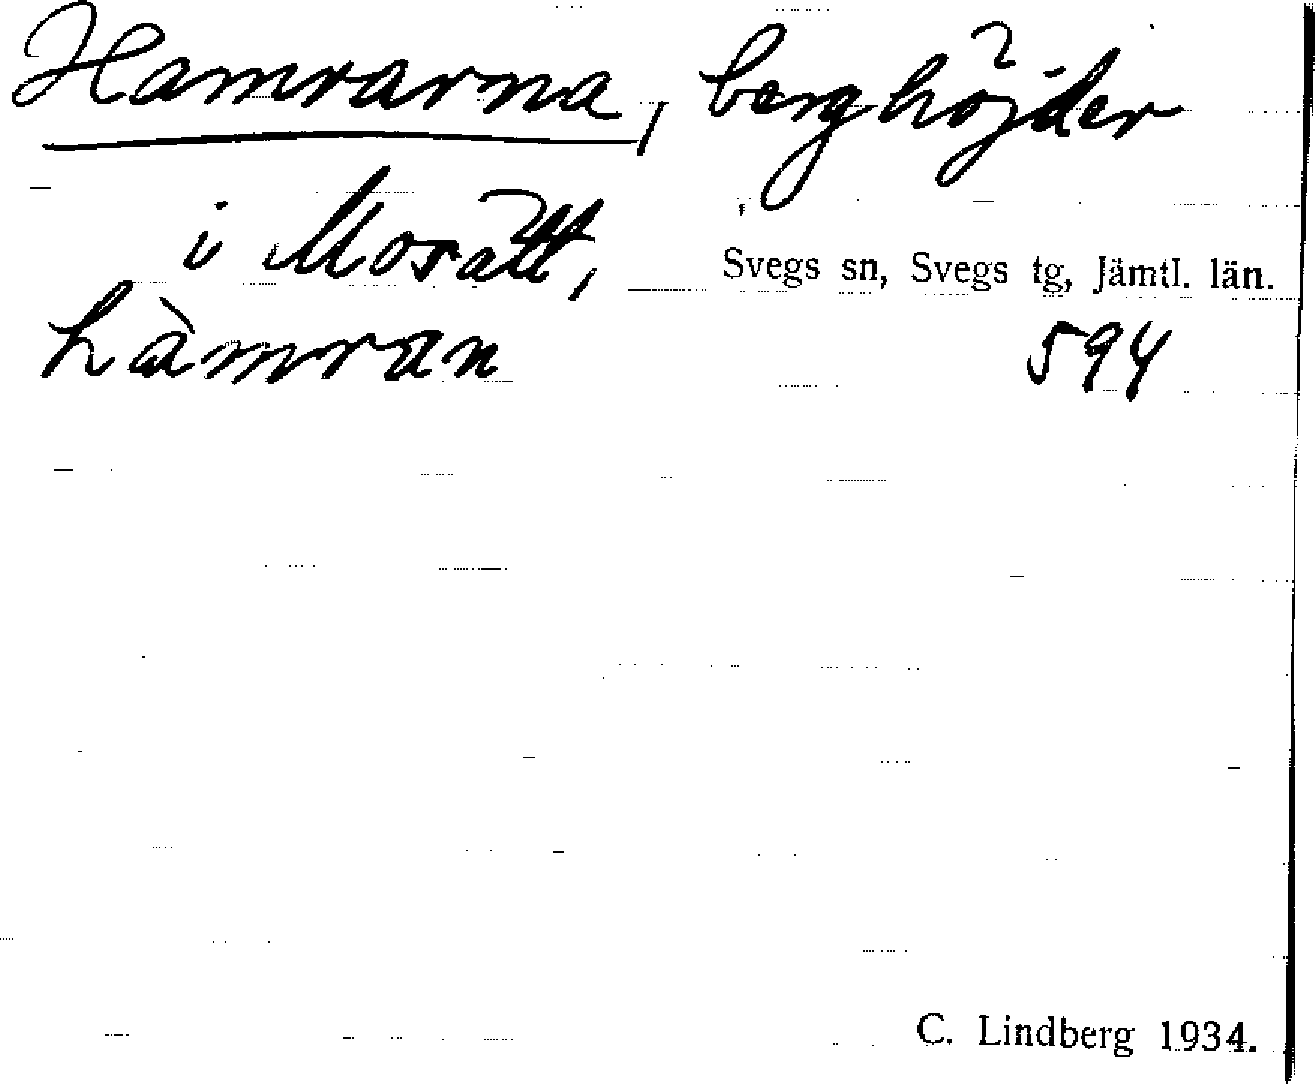 Hamrarna, berghöjder
i Mosätt, Svegs sn, Svegs tg, Jämtl. län.
hàmran 594
C. Lindberg 1934.